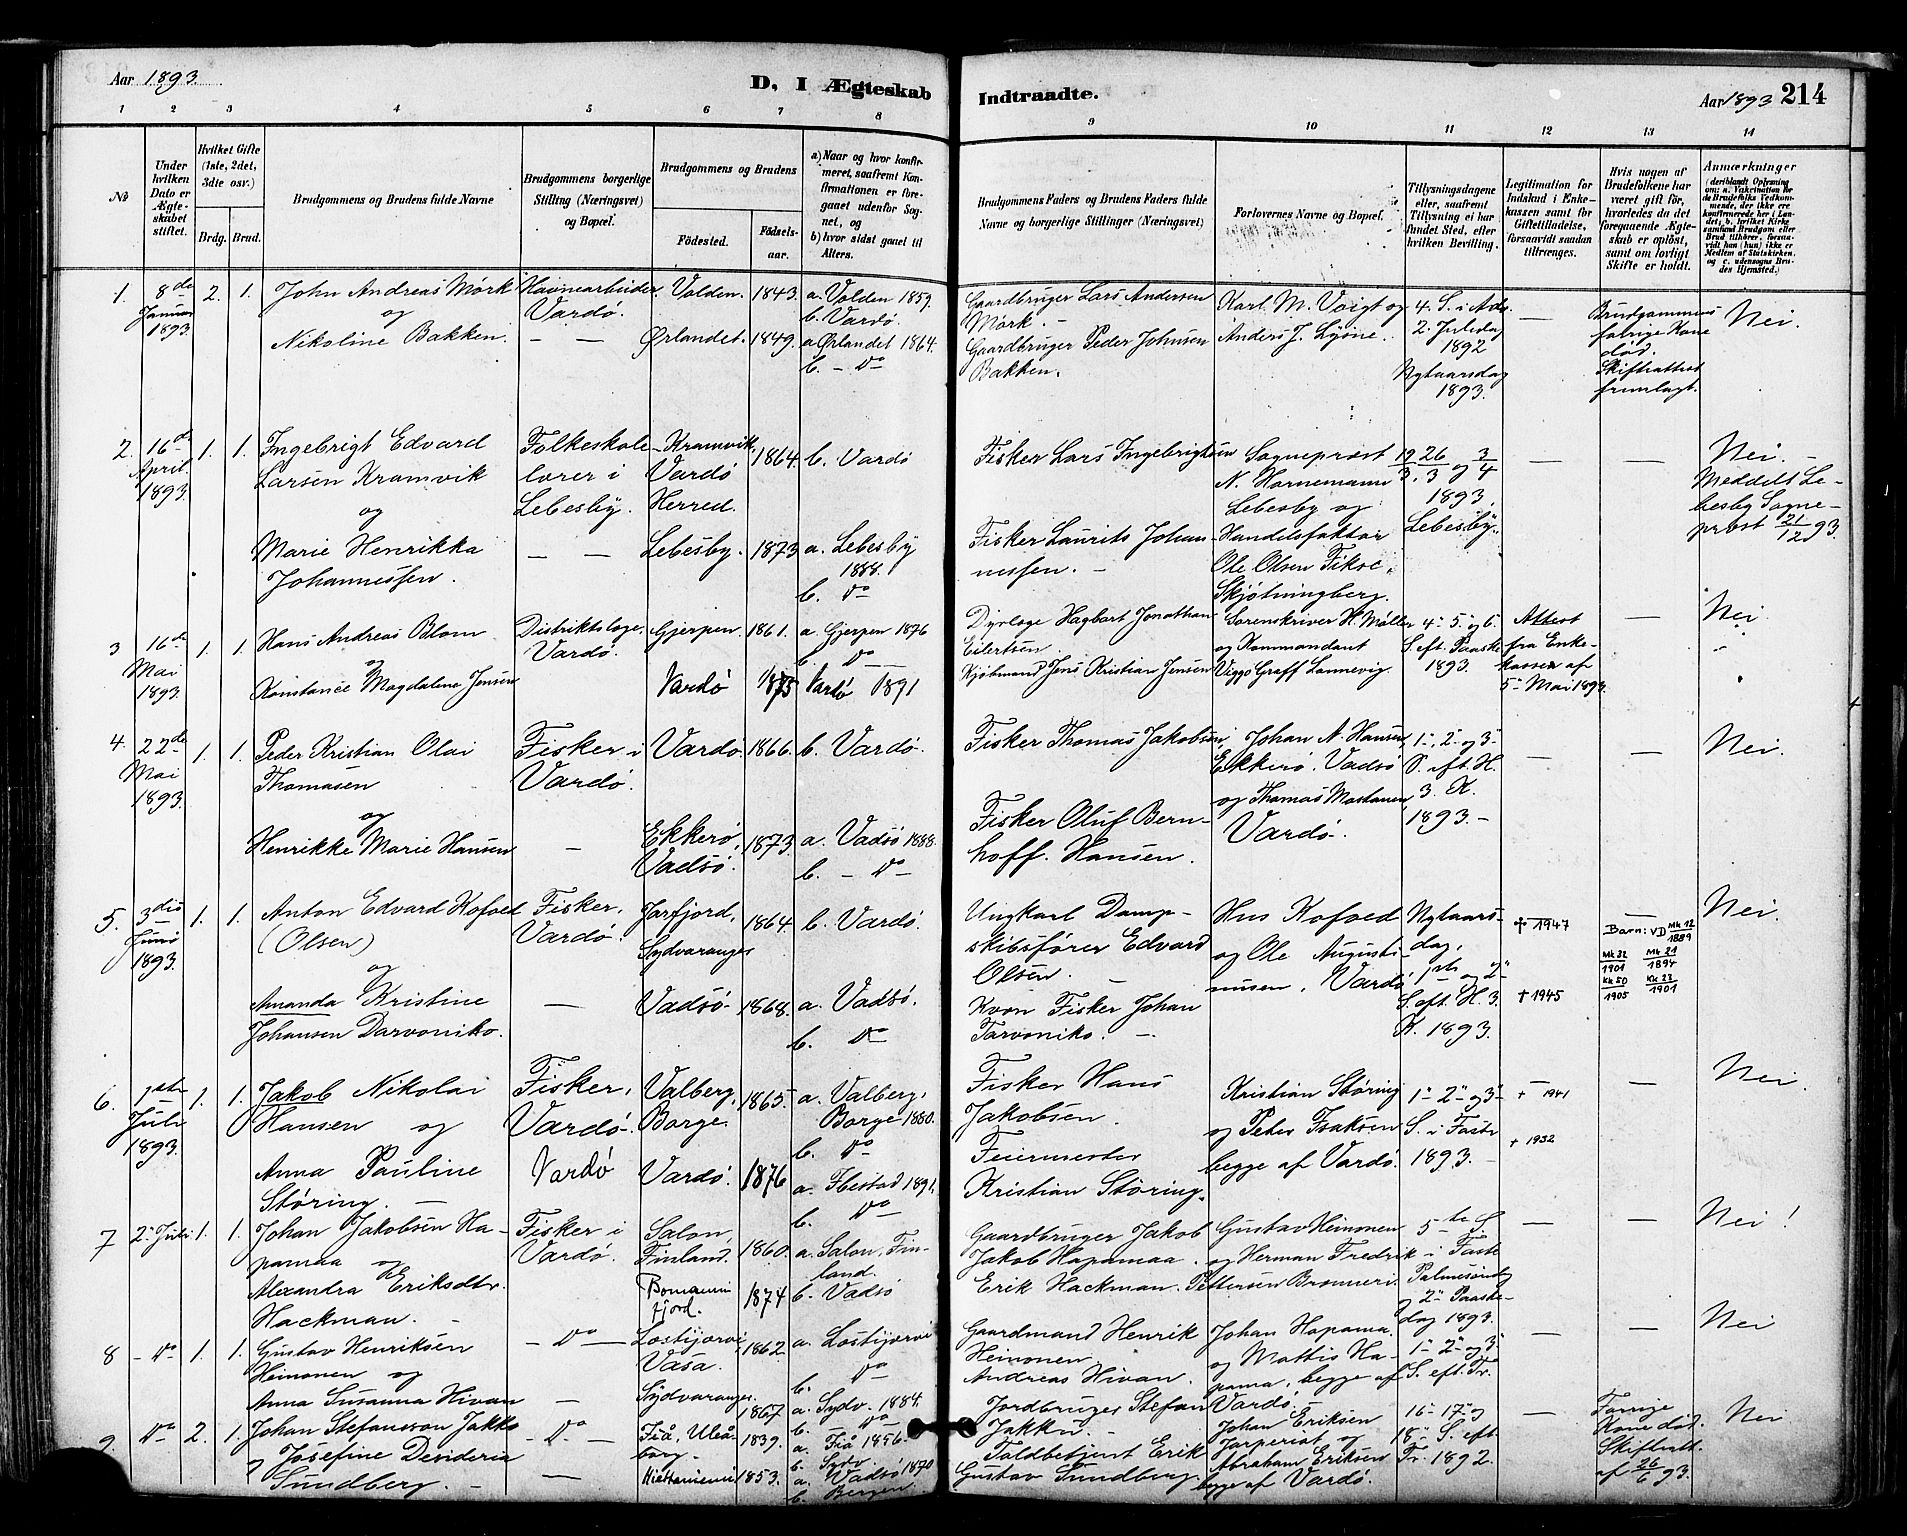 Aar 1893.
D. I Ægteskab
Indtraadte.
Aar 1893 214
1 2 3 4 5 6 7 8
9 10 11 12 13 14
No
Under hvilken Dato er Ægteskabet stiftet.
Hvilket Gifte (1ste, 2det, 3die osv.)
Brdg. Brud.
Brudgommens og Brudens fulde Navne
Brudgommens borgerlige Stilling (Næringsvei) og Bopæl.
Brudgommens og Brudens
Fødested.
Fødselsaar.
a) Naar og hvor konfirmeret, saafremt Konfirmationen er foregaaet udenfor Sognet, og
b) hvor sidst gaaet til Alters.
Brudgommens Faders og Brudens Faders fulde Navne og borgerlige Stillinger (Næringsvei)
Forlovernes Navne og Bopæl.
Tillysningsdagene eller, saafremt Tillysning ei har fundet Sted, efter hvilken Bevilling.
Legitimation for Indskud i Enkekassen samt for Giftetilladelse, forsaavidt saadan tiltrænges.
Hvis nogen af Brudefolkene har været gift før, hvorledes da det foregaaende Ægteskab er opløst, samt om lovligt Skifte er holdt.
Anmærkninger
(deriblandt Oplysning om: a. Vakcination for de Brudefolks Vedkommende, der ikke ere konfirmerede her i Landet; b. hvilket Kirkesamfund Brudgom eller Brud tilhører, forsaavidt han (hun) ikke er Medlem af Statskirken, og c. udensogns Brudes Hjemsted.)
1. 8de Januar 1893. 2. 1.
John Andreas Mørk
og
Nikoline Bakken.
Havnearbeider. Vardø.
— —
Volden. 1843.
Ørlandet. 1849.
a. Volden 1859.
b. Vardø.
a Ørlandet 1864.
b. — Do
Gaardbruger Lars Andersen
Mørk. —
Gaardbruger Peder Johnsen
Bakken.
Karl M. Voigt og
Anders J. Lysne.
4. S. i Adv.
2. Juledag
1892
Nytaarsdag
1893.
—
Brudgommens
forrige Kone
død.
Skifteattest
fremlagt.
Nei.
2. 16de April 1893. 1. 1.
Ingebrigt Edvard
Larsen Kramvik
og
Marie Henrikka
Johannessen.
Folkeskole-
lærer i
Lebesby.
— —
Kramvik,
Vardø
Herred.
1864.
Lebesby. 1873
b. Vardø
a. Lebesby
1888.
b. Do
Fisker Lars Ingebrigtsen
Fisker Laurits Johan-
nessen. —
Sogneprest
N. Hornemann
Lebesby og
Handelsfaktor
Ole Olsen Fikse,
Skjøtningberg.
19/3, 26/3 og 3/4
1893.
Lebesby.
— —
Nei. —
Meddelt Le-
besby Sogne-
prest 21/12 93.
3 16de Mai 1893. 1. 1.
Hans Andreas Blom
og
Konstance Magdalene Jensen
Distriktslæge.
Vardø.
Gjerpen. 1861.
Vardø 1875
a. Gjerpen 1876
b. Do
Vardø 1891
Dyrlæge Hagbart Jonathan
Eilertsen.
Kjøbmand Jens Kristian Jensen
Sorenskriver H. Møller
og Kommandant
Viggo Graff Lonnevig.
4-5 og 6
S. eft. Paaske
1893.
Attest
fra Enke-
kassen af
5- Mai 1893.
—
Nei.
4. 22de Mai 1893. 1. 1.
Peder Kristian Olai
Thomasen
og
Henrikke Marie Hansen
Fisker i
Vardø.
—
Vardø. 1866.
Ekkerø,
Vadsø. 1873.
b. Vardø.
a. Vadsø 1888.
b. — Do —
Fisker Thomas Jakobsen
Fisker Oluf Bern-
hoff. Hansen.
Johan N. Hansen,
Ekkerø. Vadsø
og Thomas
Vardø.
1-, 2- og 3-
S. eft. H.
3. K.
1893. —
— —
Nei.
5. 3die Juni 1893. 1. 1.
Anton Edvard Kofoed
(Olsen)
og
Amanda Kristine
Johansen Darvoniko.
Fisker.
Vardø.
—
Jarfjord,
Sydvaranger
1864.
Vadsø. 1868.
b. Vardø.
a. Vadsø.
b. Do
Ungkarl Damp-
skibsfører Edvard
Olsen. —
Kvæn Fisker Johan
Tarvoniko. —
Hus Kofoed
og Ole Augusti-
nusen. Vardø
Nytaars-
dag,
1ste og 2-
S. eft. H. 3.
K. 1893.
+ 1947
+ 1945
—
Barn: VD Mk 12/1889
Mk 32/1901 Mk 21/1894
Kk 50/1905 Kk 23/1901
Nei.
6. 1ste Juli 1893. 1. 1.
Jakob Nikolai
Hansen og
Anna Pauline
Støring. —
Fisker,
Vardø.
Vardø
Valberg,
Borge. 1865.
Vardø. 1876
a. Valberg,
Borge 1880.
b. Do
a. Ibestad 1891.
b. Do
Fisker Hans
Jakobsen.
Feiermester
Kristian Støring.
Kristian Støring
og Peter Isaksen
begge af Vardø.
1- 2- og 3-
S. i Faste
1893. —
+ 1941
+ 1932
—
Nei.
7 2- Juli 1. 1.
Johan Jakobsen Ha-
pamaa og
Alexandra Eriksdtr.
Hackman. —
Fisker i
Vardø.
Salon,
Finland. 1860.
fjord. 1874
a. Salon, Fin-
land.
b. Vadsø
Gaardbruger Jakob
Jakob Hapamaa.
Erik Hackman.
Gustav Heinonen
og Herman Fredrik
Pettersen
5-te S.
i Faste
Palmesøndag
og 2- Paaske-
dag 1893.
— —
Nei!
8 — Do 1. 1.
Gustav Henriksen
Heinonen og
Anna Susanna Hivan
— Do —
—
Lostijærvi
Vasa. 1862.
Sydvaranger.
1867
a. Lostijærvi
b. Do
a. Sydv. 1884.
b. — Do —
Gaardmand Henrik
Heinonen
Andreas Hivan.
Johan Hapama.
og Mattis Ha-
pama, begge af
Vardø.
1- 2- og 3-
S. eft. Tr.
— —
Nei
9. Do 2. 1.
Johan Stefansson Jakko
og Josefine Desideria
Sundberg. —
— Do —
—
Fiå, Uleå-
borg. 1839.
Hietaniemi 1853.
a. Fiå 1856.
b. Sydv.
a. Vadsø 1870
b. Bergen.
Jordbruger Stefan
Jakko.
Toldbetjent Erik
Gustav Sundberg.
Johan Eriksen
og
Abraham Eriksen
begge af Vardø.
16- 17- og
18- S. eft
Tr. 1892.
—
Forrige
Kone død
Skifteatt.
af 26/6 93.
Nei